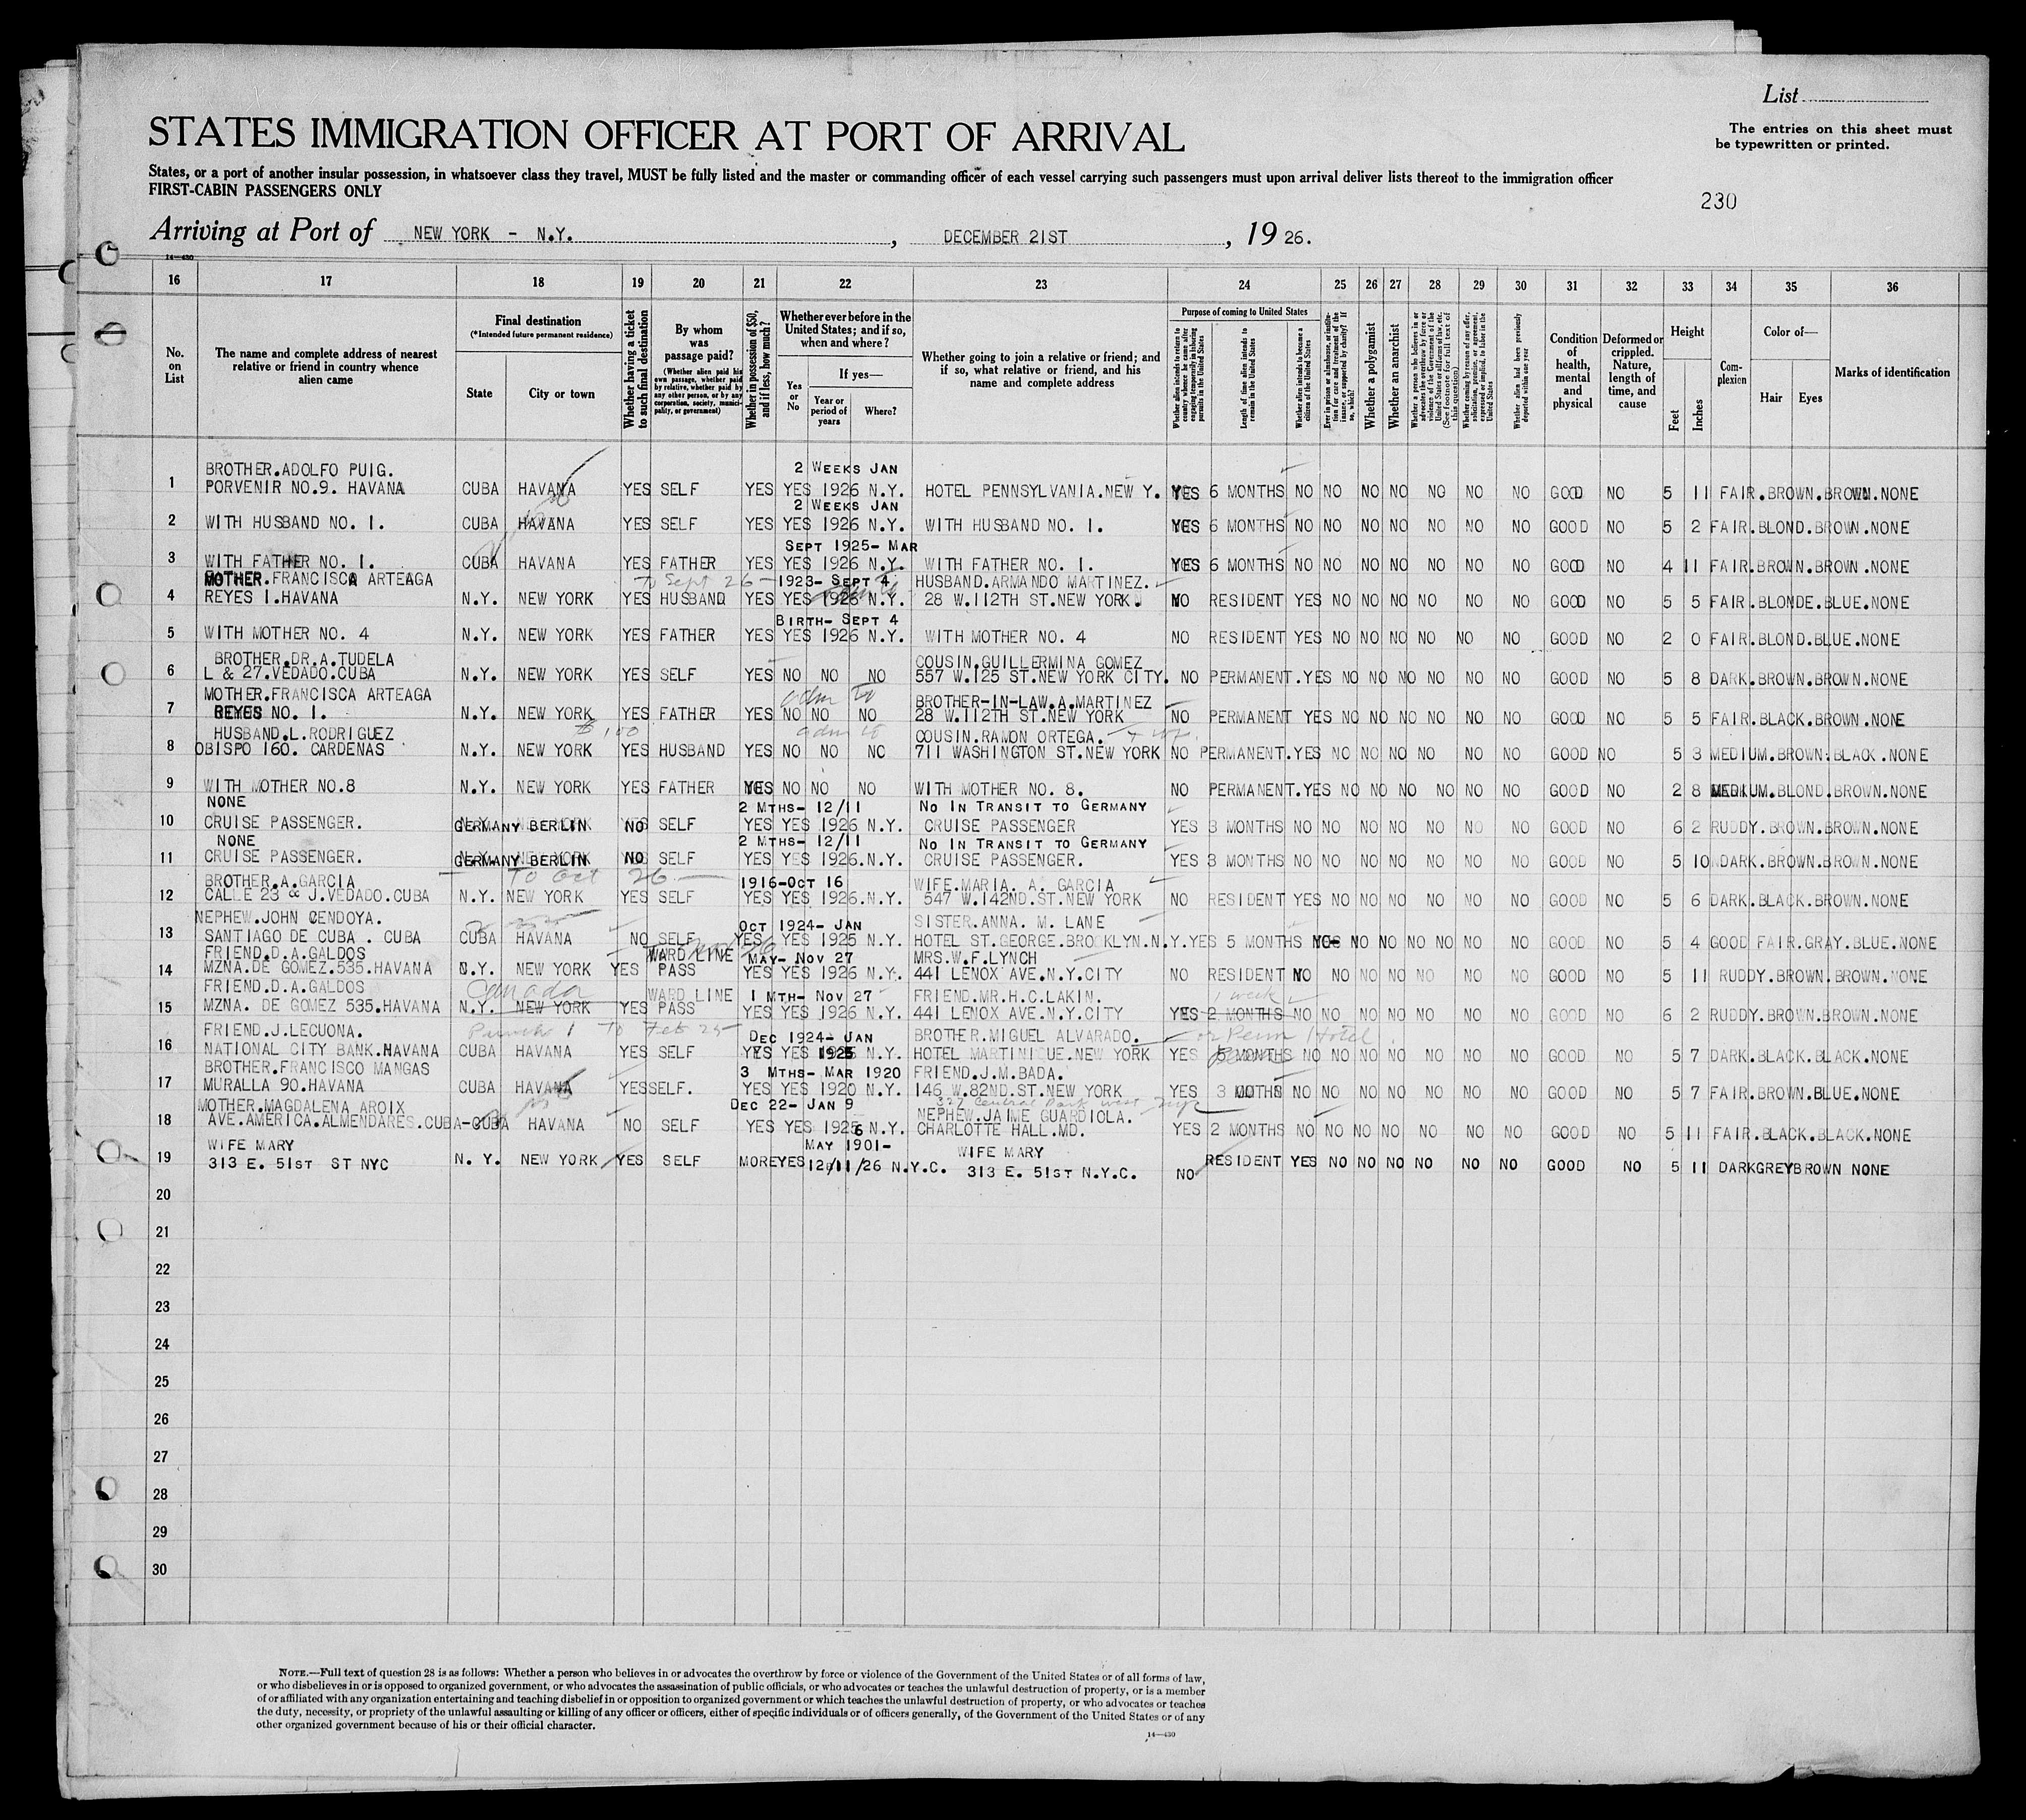 List
STATES IMMIGRATION OFFICER AT PORT OF ARRIVAL
The entries on this sheet must
be typewritten or printed.
States, or a port of another insular possession, in whatsoever class they travel, MUST be fully listed and the master or commanding officer of each vessel carrying such passengers must upon arrival deliver lists thereof to the immigration officer
FIRST-CABIN PASSENGERS ONLY
230
Arriving at Port of NEW YORK - N.Y. , DECEMBER 21ST , 19 26.
14—430
16 17 18 19 20 21 22 23 24 25 26 27 28 29 30 31 32 33 34 35 36
No. on List
The name and complete address of nearest relative or friend in country whence alien came
Final destination
(*Intended future permanent residence)
State
City or town
Whether having a ticket to such final destination
By whom was passage paid?
(Whether alien paid his own passage, whether paid by relative, whether paid by any other person, or by any corporation, society, municipality, or government)
Whether in possession of $50, and if less, how much?
Whether ever before in the United States; and if so, when and where?
Yes or No
If yes—
Year or period of years
Where?
Whether going to join a relative or friend; and if so, what relative or friend, and his name and complete address
Purpose of coming to United States
Whether alien intends to return to country whence he came after engaging temporarily in laboring pursuits in the United States
Length of time alien intends to remain in the United States
Whether alien intends to become a citizen of the United States
Ever in prison or almshouse, or institution for care and treatment of the insane, or supported by charity? If so, which?
Whether a polygamist
Whether an anarchist
Whether a person who believes in or advocates the overthrow by force or violence of the Government of the United States or all forms of law, etc. (See footnote for full text of this question)
Whether coming by reason of any offer, solicitation, promise, or agreement, expressed or implied, to labor in the United States
Whether alien had been previously deported within one year
Condition of health, mental and physical
Deformed or crippled. Nature, length of time, and cause
Height
Feet
Inches
Complexion
Color of—
Hair
Eyes
Marks of identification
BROTHER.ADOLFO PUIG. 2 WEEKS JAN
1 PORVENIR NO.9. HAVANA CUBA HAVANA YES SELF YES YES 1926 N.Y. HOTEL PENNSYLVANIA.NEW Y. YES 6 MONTHS NO NO NO NO NO NO NO GOOD NO 5 11 FAIR.BROWN.BROWN.NONE
2 WEEKS JAN
2 WITH HUSBAND NO. 1. CUBA HAVANA YES SELF YES YES 1926 N.Y. WITH HUSBAND NO. 1. YES 6 MONTHS NO NO NO NO NO NO NO GOOD NO 5 2 FAIR.BLOND.BROWN.NONE
SEPT 1925- MAR
3 WITH FATHER NO. 1. CUBA HAVANA YES FATHER YES YES 1926 N.Y. WITH FATHER NO. 1. YES 6 MONTHS NO NO NO NO NO NO NO GOOD NO 4 11 FAIR.BROWN.BROWN.NONE
MOTHER.FRANCISCA ARTEAGA To Sept 26 - 1923- SEPT 4 HUSBAND.ARMANDO MARTINEZ.
4 REYES 1.HAVANA N.Y. NEW YORK YES HUSBAND YES YES 1926 N.Y. 28 W.112TH ST.NEW YORK. NO RESIDENT YES NO NO NO NO NO NO GOOD NO 5 5 FAIR.BLONDE.BLUE.NONE
BIRTH- SEPT 4
5 WITH MOTHER NO. 4 N.Y. NEW YORK YES FATHER YES YES 1926 N.Y. WITH MOTHER NO. 4 NO RESIDENT YES NO NO NO NO NO NO GOOD NO 2 0 FAIR.BLOND.BLUE.NONE
BROTHER.DR.A.TUDELA COUSIN.GUILLERMINA GOMEZ
6 L & 27.VEDADO.CUBA N.Y. NEW YORK YES SELF YES NO NO NO 557 W.125 ST.NEW YORK CITY. NO PERMANENT.YES NO NO NO NO NO NO GOOD NO 5 8 DARK.BROWN.BROWN.NONE
MOTHER.FRANCISCA ARTEAGA adm to BROTHER-IN-LAW.A.MARTINEZ
7 REYES NO. 1. N.Y. NEW YORK YES FATHER YES NO NO NO 28 W.112TH ST.NEW YORK NO PERMANENT YES NO NO NO NO NO NO GOOD NO 5 5 FAIR.BLACK.BROWN.NONE
HUSBAND.L.RODRIGUEZ $100 adm to COUSIN.RAMON ORTEGA.
8 OBISPO 160. CARDENAS N.Y. NEW YORK YES HUSBAND YES NO NO NO 711 WASHINGTON ST.NEW YORK NO PERMANENT.YES NO NO NO NO NO NO GOOD NO 5 3 MEDIUM.BROWN.BLACK.NONE
9 WITH MOTHER NO.8 N.Y. NEW YORK YES FATHER YES NO NO NO WITH MOTHER NO. 8. NO PERMANENT.YES NO NO NO NO NO NO GOOD NO 2 8 MEDIUM.BLOND.BROWN.NONE
NONE 2 MTHS- 12/11 NO IN TRANSIT TO GERMANY
10 CRUISE PASSENGER. GERMANY BERLIN NO SELF YES YES 1926 N.Y. CRUISE PASSENGER YES 3 MONTHS NO NO NO NO NO NO NO GOOD NO 6 2 RUDDY.BROWN.BROWN.NONE
NONE 2 MTHS- 12/11 NO IN TRANSIT TO GERMANY
11 CRUISE PASSENGER. GERMANY BERLIN NO SELF YES YES 1926.N.Y. CRUISE PASSENGER. YES 3 MONTHS NO NO NO NO NO NO NO GOOD NO 5 10 DARK.BROWN.BROWN.NONE
BROTHER.A.GARCIA To Oct 26 - 1916-OCT 16 WIFE.MARIA. A. GARCIA
12 CALLE 23 & J.VEDADO.CUBA N.Y. NEW YORK YES SELF YES YES 1926.N.Y. 547 W.142ND.ST.NEW YORK NO RESIDENT YES NO NO NO NO NO NO GOOD NO 5 6 DARK.BLACK.BROWN.NONE
NEPHEW.JOHN CENDOYA. OCT 1924- JAN SISTER.ANNA. M. LANE
13 SANTIAGO DE CUBA . CUBA CUBA HAVANA NO SELF YES YES 1925 N.Y. HOTEL ST.GEORGE.BROOKLYN.N.Y.YES 5 MONTHS NO NO NO NO NO NO GOOD NO 5 4 GOOD FAIR.GRAY.BLUE.NONE
FRIEND.D.A.GALDOS WARD LINE MAY- NOV 27 MRS.W.F.LYNCH
14 MZNA.DE GOMEZ.535.HAVANA N.Y. NEW YORK YES PASS YES YES 1926 N.Y. 441 LENOX AVE.N.Y.CITY NO RESIDENT NO NO NO NO NO NO NO GOOD NO 5 11 RUDDY.BROWN.BROWN.NONE
FRIEND.D.A.GALDOS Canada WARD LINE 1 MTH- NOV 27 FRIEND.MR.H.C.LAKIN. 1 week
15 MZNA. DE GOMEZ 535.HAVANA N.Y. NEW YORK YES PASS YES YES 1926 N.Y. 441 LENOX AVE.N.Y.CITY YES 2 MONTHS NO NO NO NO NO NO NO GOOD NO 6 2 RUDDY.BROWN.BROWN.NONE
FRIEND.J.LECUONA. To Feb 25 DEC 1924- JAN BROTHER.MIGUEL ALVARADO. or Penn Hotel.
16 NATIONAL CITY BANK.HAVANA CUBA HAVANA YES SELF YES YES 1925 N.Y. HOTEL MARTINIQUE.NEW YORK YES MONTHS NO NO NO NO NO NO NO GOOD NO 5 7 DARK.BLACK.BLACK.NONE
BROTHER.FRANCISCO MANGAS 3 MTHS- MAR 1920 FRIEND.J.M.BADA.
17 MURALLA 90.HAVANA CUBA HAVANA YES SELF. YES YES 1920 N.Y. 146 W.82ND.ST.NEW YORK YES 3 MOTHS NO NO NO NO NO NO NO GOOD NO 5 7 FAIR.BROWN.BLUE.NONE
327 Central Park West
MOTHER.MAGDALENA AROIX DEC 22- JAN 9 NEPHEW.JAIME GUARDIOLA.
18 AVE.AMERICA.ALMENDARES.CUBA-CUBA HAVANA NO SELF YES YES 1926 N.Y. CHARLOTTE HALL.MD. YES 2 MONTHS NO NO NO NO NO NO NO GOOD NO 5 11 FAIR.BLACK.BLACK.NONE
WIFE MARY MAY 1901- WIFE MARY
19 313 E. 51ST ST NYC N. Y. NEW YORK YES SELF MORE YES 12/11/26 N.Y.C. 313 E. 51ST N.Y.C. NO RESIDENT YES NO NO NO NO NO NO GOOD NO 5 11 DARK GREY BROWN NONE
20
21
22
23
24
25
26
27
28
29
30
NOTE.—Full text of question 28 is as follows: Whether a person who believes in or advocates the overthrow by force or violence of the Government of the United States or of all forms of law,
or who disbelieves in or is opposed to organized government, or who advocates the assassination of public officials, or who advocates or teaches the unlawful destruction of property, or is a member
of or affiliated with any organization entertaining and teaching disbelief in or opposition to organized government or which teaches the unlawful destruction of property, or who advocates or teaches
the duty, necessity, or propriety of the unlawful assaulting or killing of any officer or officers, either of specific individuals or of officers generally, of the Government of the United States or of any
other organized government because of his or their official character.
14—430